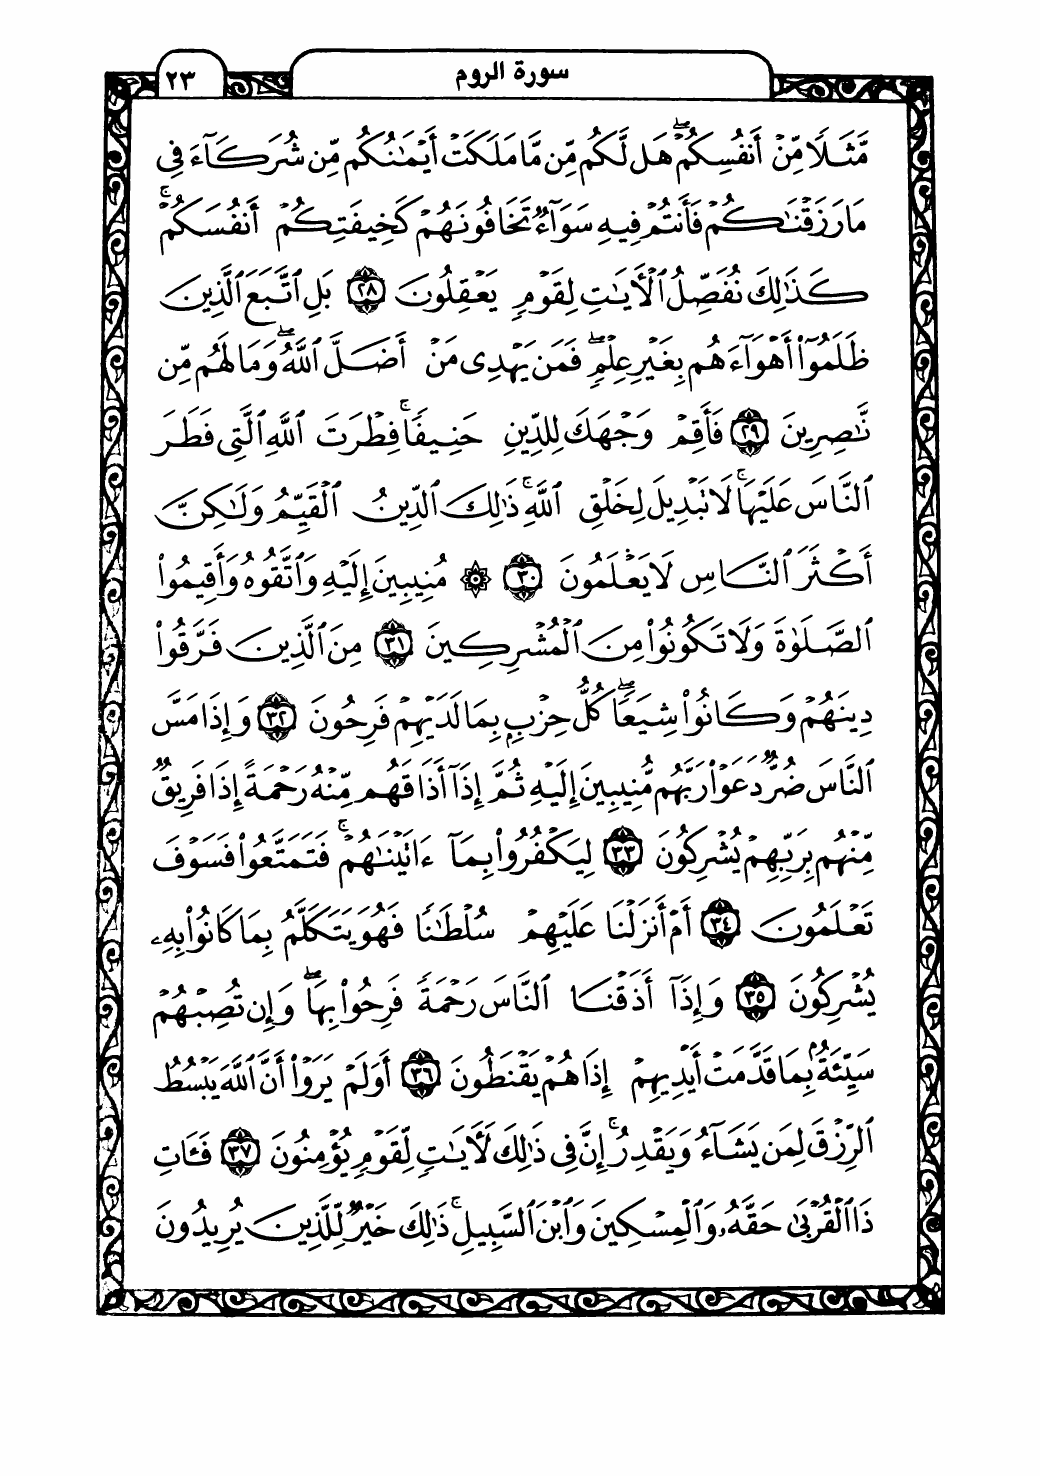 سورة الروم
٢٣
مَّثَلًا مِّنْ أَنفُسِكُمْ ۖ هَل لَّكُم مِّن مَّا مَلَكَتْ أَيْمَٰنُكُم مِّن شُرَكَآءَ فِى
مَا رَزَقْنَٰكُمْ فَأَنتُمْ فِيهِ سَوَآءٌ تَخَافُونَهُمْ كَخِيفَتِكُمْ أَنفُسَكُمْ ۚ
كَذَٰلِكَ نُفَصِّلُ ٱلْـَٔايَٰتِ لِقَوْمٍ يَعْقِلُونَ ٢٨ بَلِ ٱتَّبَعَ ٱلَّذِينَ
ظَلَمُوٓا۟ أَهْوَآءَهُم بِغَيْرِ عِلْمٍ ۖ فَمَن يَهْدِى مَنْ أَضَلَّ ٱللَّهُ ۖ وَمَا لَهُم مِّن
نَّٰصِرِينَ ٢٩ فَأَقِمْ وَجْهَكَ لِلدِّينِ حَنِيفًا ۚ فِطْرَتَ ٱللَّهِ ٱلَّتِى فَطَرَ
ٱلنَّاسَ عَلَيْهَا ۚ لَا تَبْدِيلَ لِخَلْقِ ٱللَّهِ ۚ ذَٰلِكَ ٱلدِّينُ ٱلْقَيِّمُ وَلَٰكِنَّ
أَكْثَرَ ٱلنَّاسِ لَا يَعْلَمُونَ ٣٠ ۞ مُنِيبِينَ إِلَيْهِ وَٱتَّقُوهُ وَأَقِيمُوا۟
ٱلصَّلَوٰةَ وَلَا تَكُونُوا۟ مِنَ ٱلْمُشْرِكِينَ ٣١ مِنَ ٱلَّذِينَ فَرَّقُوا۟
دِينَهُمْ وَكَانُوا۟ شِيَعًا ۖ كُلُّ حِزْبٍۭ بِمَا لَدَيْهِمْ فَرِحُونَ ٣٢ وَإِذَا مَسَّ
ٱلنَّاسَ ضُرٌّ دَعَوْا۟ رَبَّهُم مُّنِيبِينَ إِلَيْهِ ثُمَّ إِذَآ أَذَاقَهُم مِّنْهُ رَحْمَةً إِذَا فَرِيقٌ
مِّنْهُم بِرَبِّهِمْ يُشْرِكُونَ ٣٣ لِيَكْفُرُوا۟ بِمَآ ءَاتَيْنَٰهُمْ ۚ فَتَمَتَّعُوا۟ فَسَوْفَ
تَعْلَمُونَ ٣٤ أَمْ أَنزَلْنَا عَلَيْهِمْ سُلْطَٰنًا فَهُوَ يَتَكَلَّمُ بِمَا كَانُوا۟ بِهِۦ
يُشْرِكُونَ ٣٥ وَإِذَآ أَذَقْنَا ٱلنَّاسَ رَحْمَةً فَرِحُوا۟ بِهَا ۖ وَإِن تُصِبْهُمْ
سَيِّئَةٌۢ بِمَا قَدَّمَتْ أَيْدِيهِمْ إِذَا هُمْ يَقْنَطُونَ ٣٦ أَوَلَمْ يَرَوْا۟ أَنَّ ٱللَّهَ يَبْسُطُ
ٱلرِّزْقَ لِمَن يَشَآءُ وَيَقْدِرُ ۚ إِنَّ فِى ذَٰلِكَ لَـَٔايَٰتٍ لِّقَوْمٍ يُؤْمِنُونَ ٣٧ فَـَٔاتِ
ذَا ٱلْقُرْبَىٰ حَقَّهُۥ وَٱلْمِسْكِينَ وَٱبْنَ ٱلسَّبِيلِ ۚ ذَٰلِكَ خَيْرٌ لِّلَّذِينَ يُرِيدُونَ